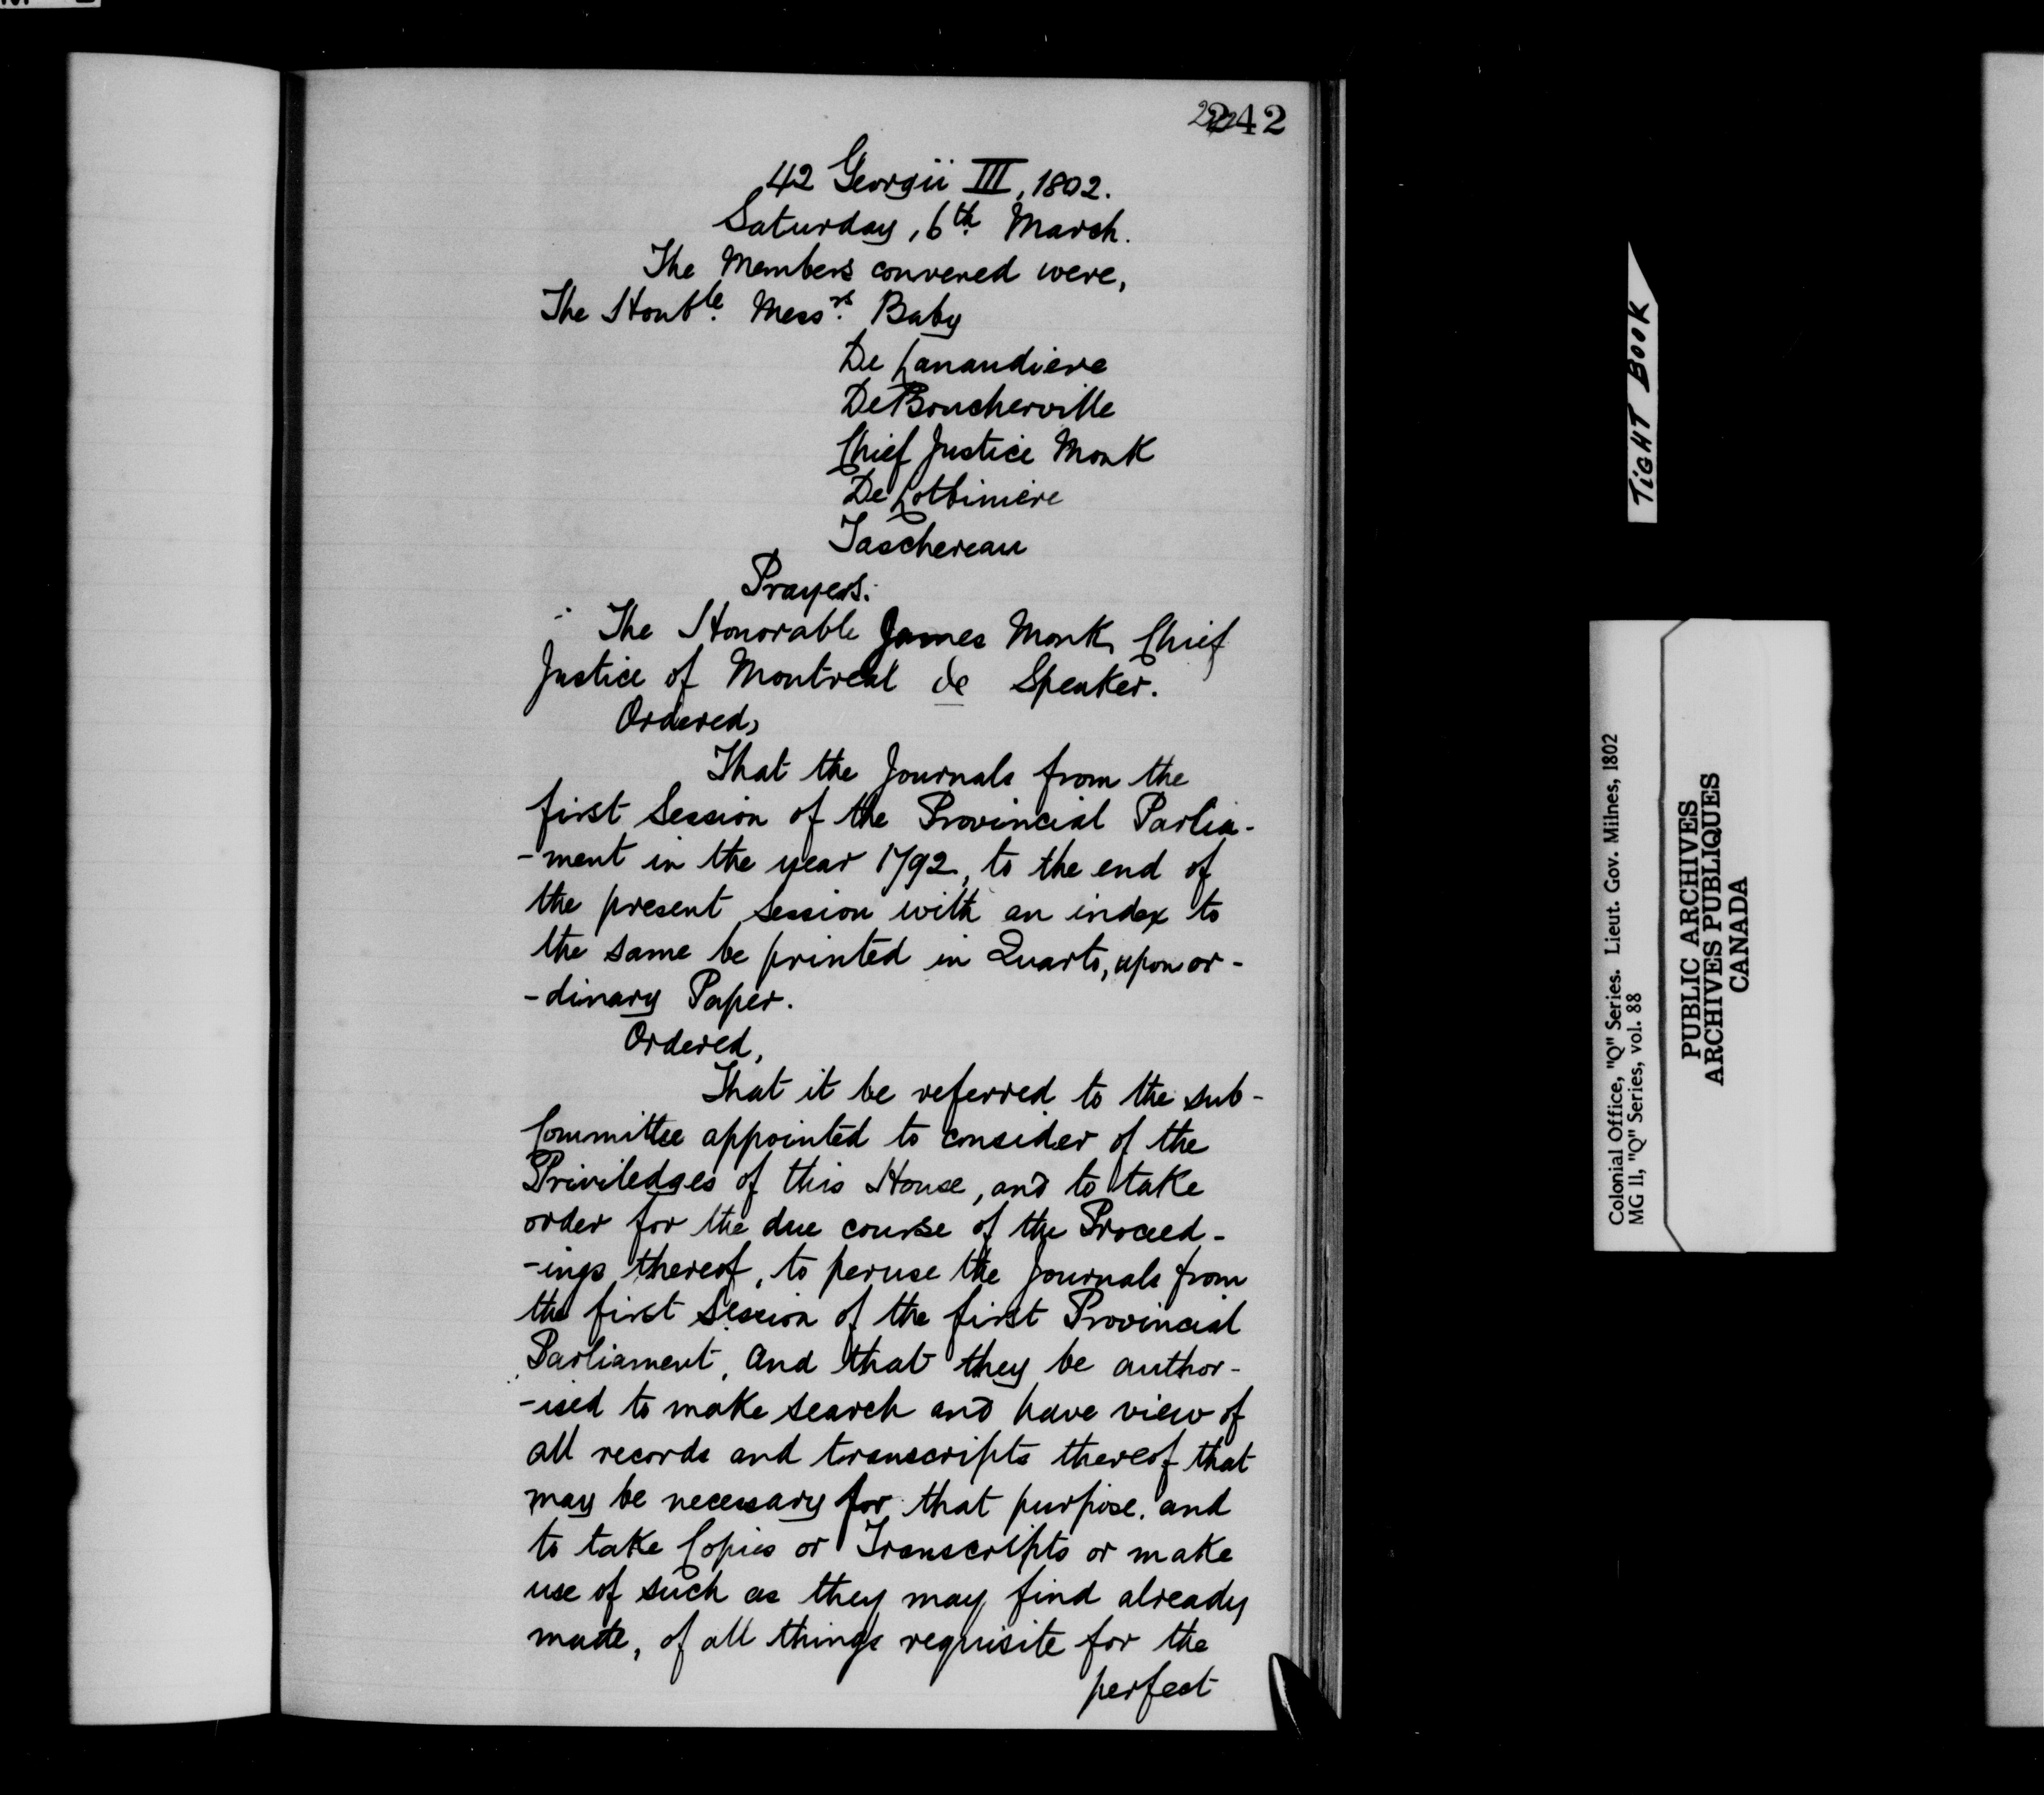 242
42 Georgii III, 1802.
Saturday, 6th March.
The Members convened were,
The Honble. Messrs. Baby
De Lanaudiere
DeBoucherville
Chief Justice Monk
De Lotbiniere
Taschereau
Prayers.
The Honorable James Monk, Chief
Justice of Montreal de Speaker.
Ordered,
That the Journals from the
first Session of the Provincial Parlia-
-ment in the year 1792, to the end of
the present Session with an index to
the same be printed in Quarto, upon or-
-dinary Paper.
Ordered,
That it be referred to the sub-
Committee appointed to consider of the
Priviledges of this House, and to take
order for the due course of the Proceed-
-ings thereof, to peruse the Journals from
the first Session of the first Provincial
Parliament, And that they be author-
-ised to make search and have view of
all records and transcripts thereof that
may be necessary for that purpose, and
to take Copies or Transcripts or make
use of such as they may find already
made, of all things requisite for the
perfect
TIGHT BOOK
Colonial Office, "Q" Series. Lieut. Gov. Milnes, 1802
MG 11, "Q" Series, vol. 88
PUBLIC ARCHIVES
ARCHIVES PUBLIQUES
CANADA